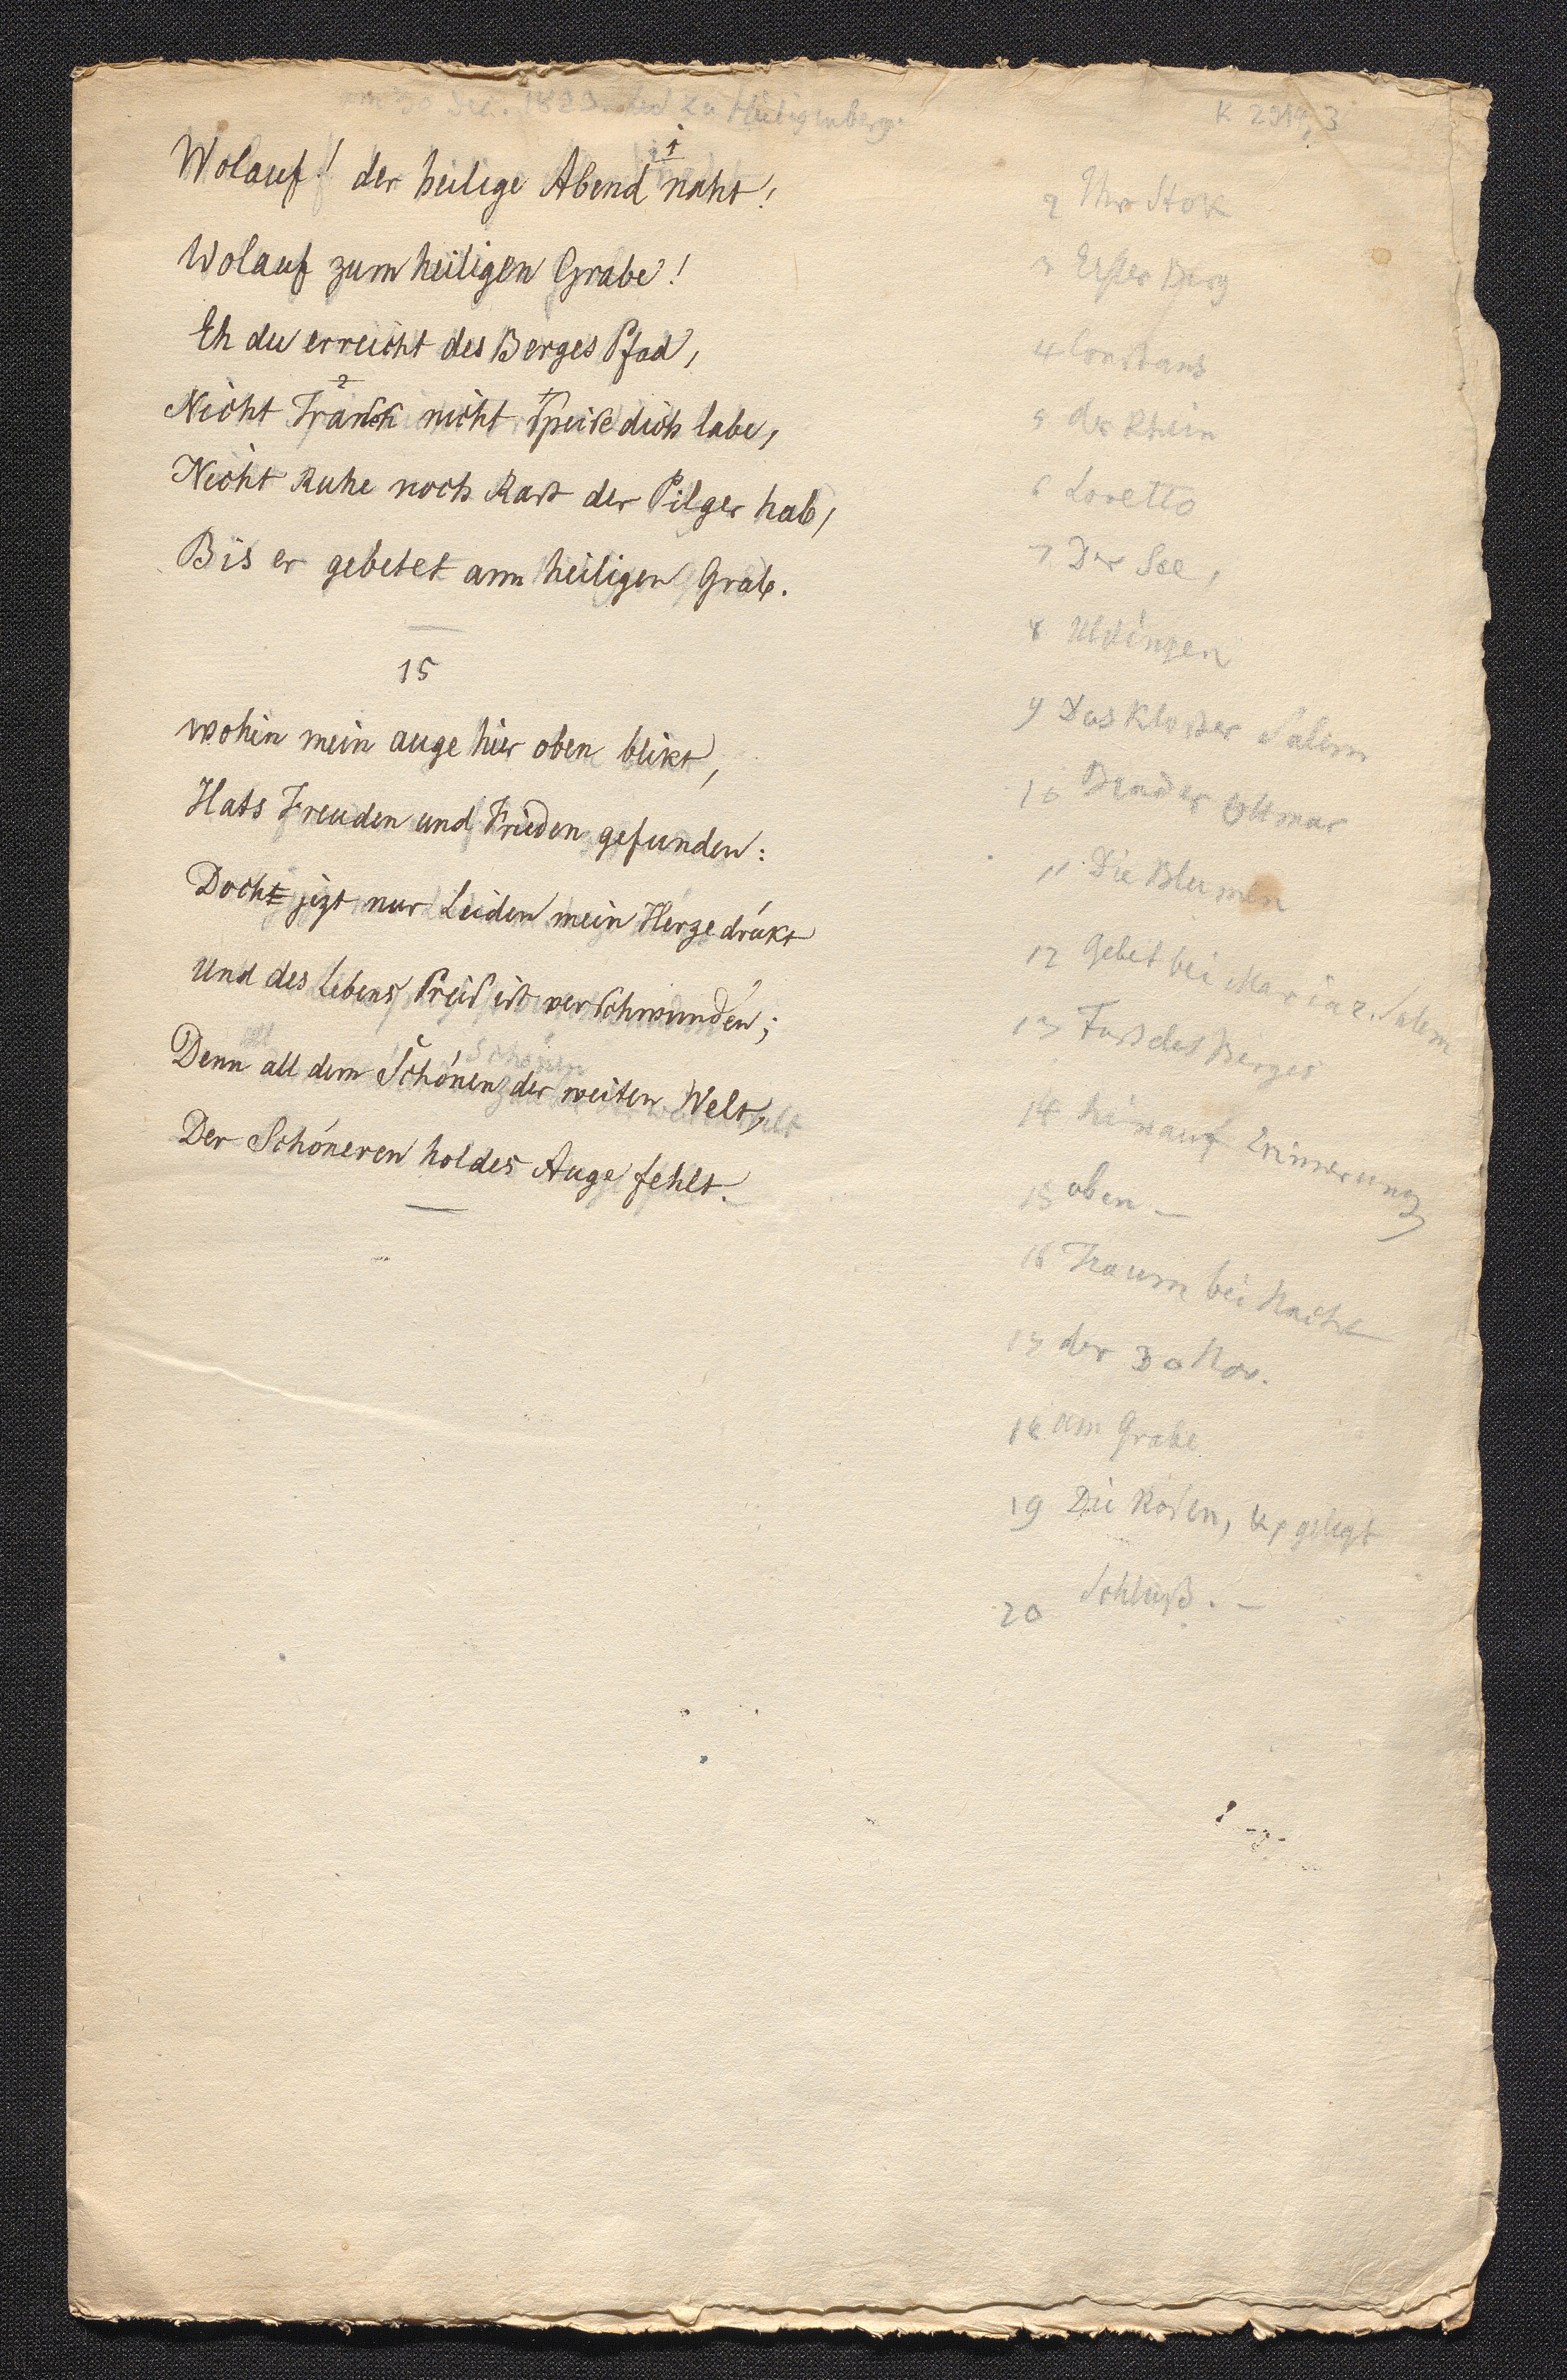 am 30 Dec. 1823. zu Heiligenberg.
K 2914,3
1
Wolauf! der heilige Abend naht!
Wolauf zum heiligen Grabe!
Eh du erreicht des Berges Pfad,
2
Nicht Trank nicht Speise dich labe,
Nicht Ruhe noch Rast der Pilger hab,
Bis er gebetet am heiligen Grab.
15
wohin mein auge hier oben blikt,
Hats Freuden und Frieden gefunden:
Doch jezt nur Leiden mein Herze drükt
Und des Lebens Preis ist verschwunden;
all Schönen
Denn all dem Schönen der weiten Welt,
Der Schöneren holdes Auge fehlt.
2 Ihr Stok
3 Erster Berg
4 Constanz
5 der Rhein
6 Loretto
7 Der See,
8 Uldingen
9 Das Kloster Salem
10 Bruder Ottmar
11 Die Blumen
12 Gebet bei Maria z. Salem
13 Fuß des Berges
14 hinauf Erinnerung
15 oben –
16 Traum bei Nacht
17 der 30 Nov.
18 am Grabe
19 Die Rosen, gelegt
20 Schluß. –